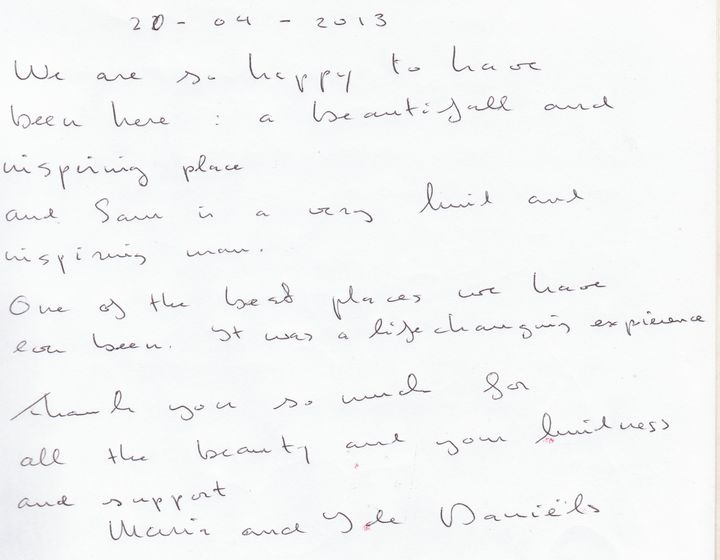 20 - 04 - 2013
We are so happy to have
been here : a beautifull and
inspiring place
and Sam is a very kind and
inspiring man.
One of the best places we have
ever been. It was a life changing expierence
Thank you so much for
all the beauty and your kindness
and support
Maria and Yde Daniëls